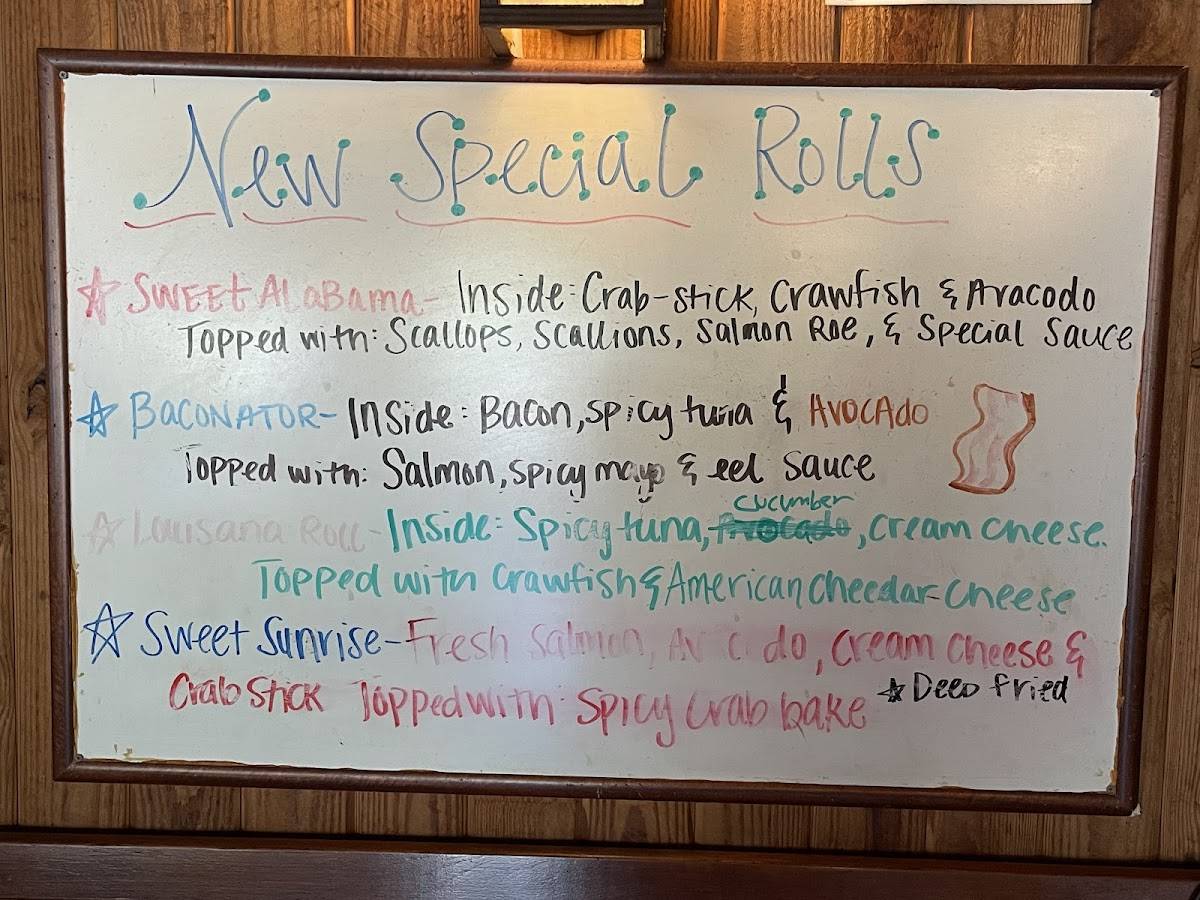 New Special Rolls
☆ Sweet Alabama - Inside: Crab-stick, Crawfish & Avacodo
Topped with: Scallops, Scallions, Salmon Roe, & Special Sauce
☆ Baconator - Inside: Bacon, spicy tuna & Avocado
Topped with: Salmon, spicy mayo & eel sauce
cucumber
☆ Louisana Roll - Inside: Spicy tuna, Avocado, Cream Cheese.
Topped with Crawfish & American Cheedar Cheese
☆ Sweet Sunrise - Fresh Salmon, Av c do, Cream Cheese &
Crab Stick Topped with: Spicy Crab bake ☆ Deep fried